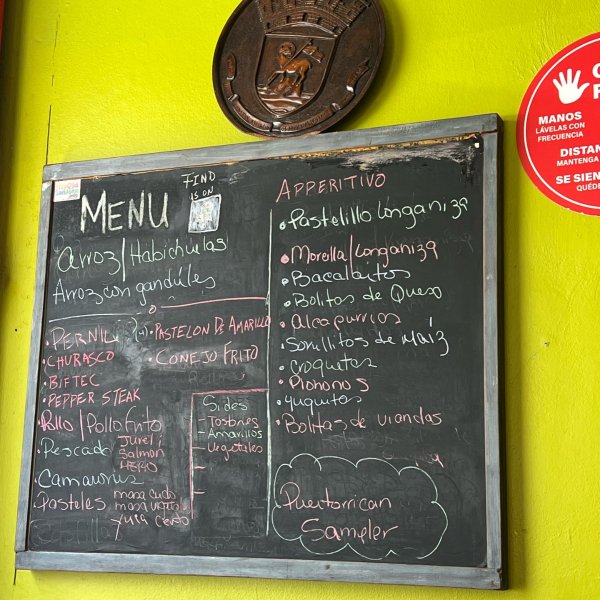 MENU
FIND
IS ON
Arroz/Habichuelas
Arroz con gandúles
• PERNIL
• CHURASCO
• BIFTEC
• PEPPER STEAK
• Pollo/Pollo frito
• Pescado
Jurel
Salmon
• Camarones
• Pasteles masa
masa
yuca
• PASTELON DE AMARILLO
• CONEJO FRITO
Sides
- Tostones
- Amarillos
- Vegetales
APPERITIVO
• Pastelillo longaniza
• Morcilla/longaniza
• Bacalaitos
• Bolitas de Queso
• alcapurrias
• Sorullitos de maíz
• Croquetas
• Pionono s
• yuquitas
• Bolitas de viandas
Puertorrican
Sampler
MANOS
LÁVELAS CON
FRECUENCIA
DISTAN
MANTENGA
SE SIEN
QUÉDE